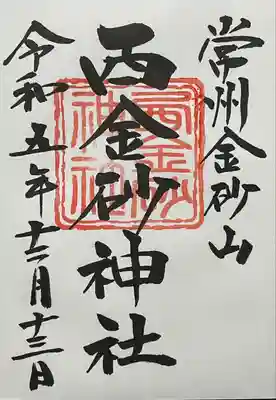 常州金砂山
西金砂神社
令和五年十二月十三日
西金砂神社